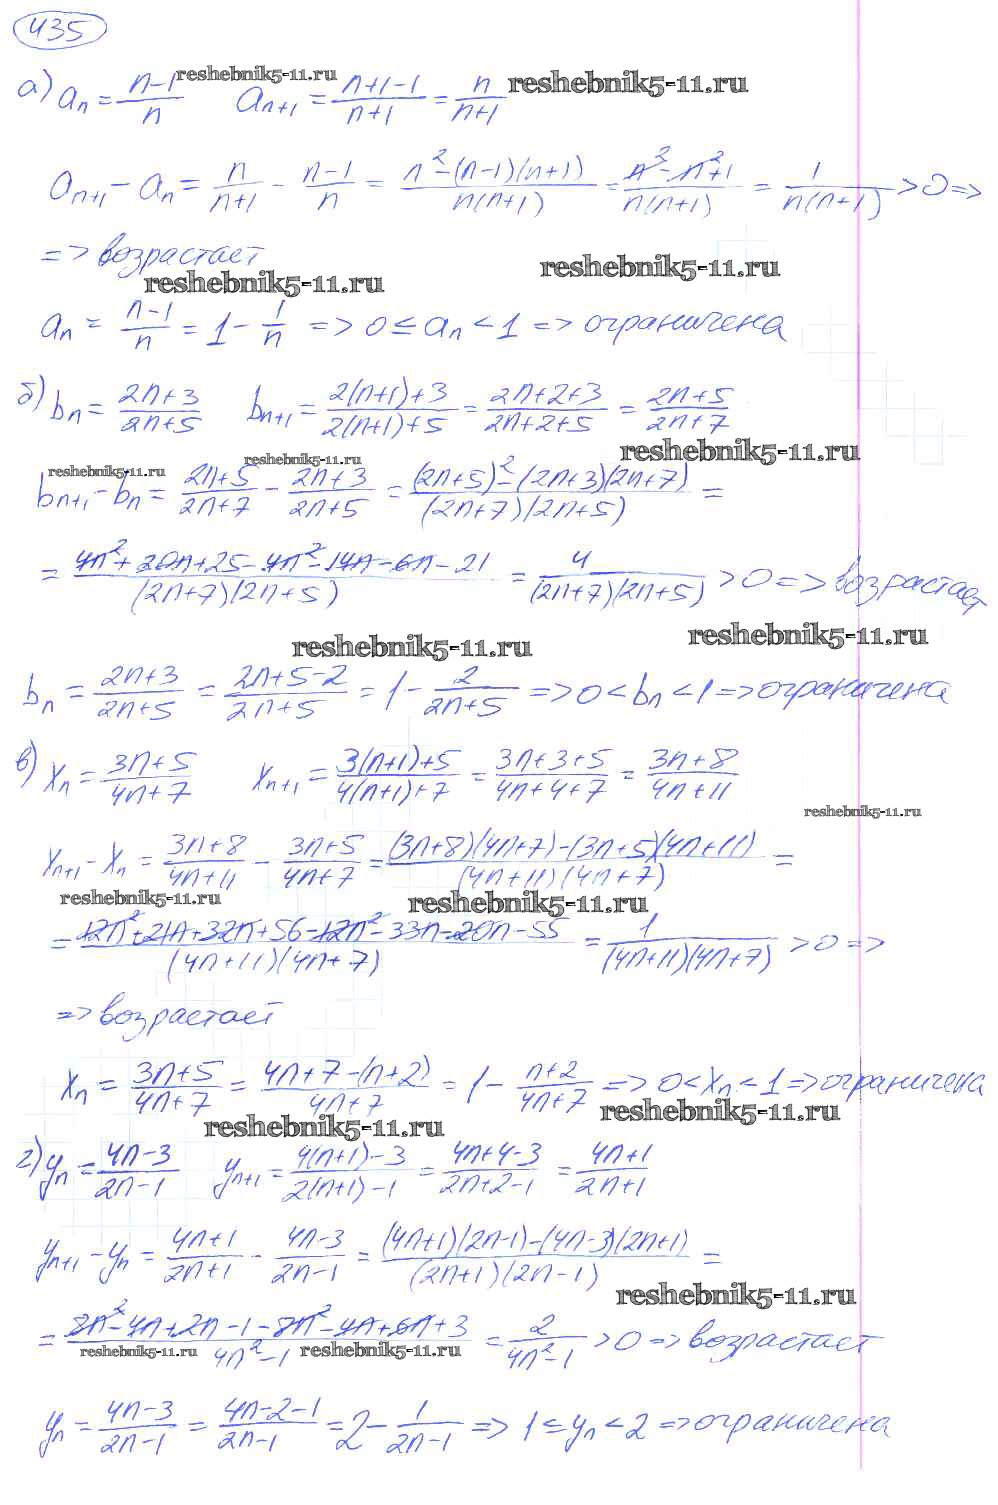 435
а) aₙ = (n-1)/n   aₙ₊₁ = (n+1-1)/(n+1) = n/(n+1)
reshebnik5-11.ru reshebnik5-11.ru
aₙ₊₁ - aₙ = n/(n+1) - (n-1)/n = (n²-(n-1)(n+1))/(n(n+1)) = (n²-n²+1)/(n(n+1)) = 1/(n(n+1)) > 0 =>
=> возрастает
reshebnik5-11.ru reshebnik5-11.ru
aₙ = (n-1)/n = 1 - 1/n => 0 ≤ aₙ < 1 => ограничена
б) bₙ = (2n+3)/(2n+5)   bₙ₊₁ = (2(n+1)+3)/(2(n+1)+5) = (2n+2+3)/(2n+2+5) = (2n+5)/(2n+7)
reshebnik5-11.ru reshebnik5-11.ru reshebnik5-11.ru
bₙ₊₁ - bₙ = (2n+5)/(2n+7) - (2n+3)/(2n+5) = ((2n+5)²-(2n+3)(2n+7))/((2n+7)(2n+5)) =
= (4n²+20n+25-4n²-14n-6n-21)/((2n+7)(2n+5)) = 4/((2n+7)(2n+5)) > 0 => возрастает
reshebnik5-11.ru reshebnik5-11.ru
bₙ = (2n+3)/(2n+5) = (2n+5-2)/(2n+5) = 1 - 2/(2n+5) => 0 < bₙ < 1 => ограничена
в) xₙ = (3n+5)/(4n+7)   xₙ₊₁ = (3(n+1)+5)/(4(n+1)+7) = (3n+3+5)/(4n+4+7) = (3n+8)/(4n+11)
reshebnik5-11.ru
xₙ₊₁ - xₙ = (3n+8)/(4n+11) - (3n+5)/(4n+7) = ((3n+8)(4n+7)-(3n+5)(4n+11))/((4n+11)(4n+7)) =
reshebnik5-11.ru reshebnik5-11.ru
= (12n²+21n+32n+56-12n²-33n-20n-55)/((4n+11)(4n+7)) = 1/((4n+11)(4n+7)) > 0 =>
=> возрастает
xₙ = (3n+5)/(4n+7) = (4n+7-(n+2))/(4n+7) = 1 - (n+2)/(4n+7) => 0 < xₙ < 1 => ограничена
reshebnik5-11.ru reshebnik5-11.ru
г) yₙ = (4n-3)/(2n-1)   yₙ₊₁ = (4(n+1)-3)/(2(n+1)-1) = (4n+4-3)/(2n+2-1) = (4n+1)/(2n+1)
yₙ₊₁ - yₙ = (4n+1)/(2n+1) - (4n-3)/(2n-1) = ((4n+1)(2n-1)-(4n-3)(2n+1))/((2n+1)(2n-1)) =
reshebnik5-11.ru
= (8n²-4n+2n-1-8n²-4n+6n+3)/(4n²-1) = 2/(4n²-1) > 0 => возрастает
reshebnik5-11.ru reshebnik5-11.ru
yₙ = (4n-3)/(2n-1) = (4n-2-1)/(2n-1) = 2 - 1/(2n-1) => 1 ≤ yₙ < 2 => ограничена